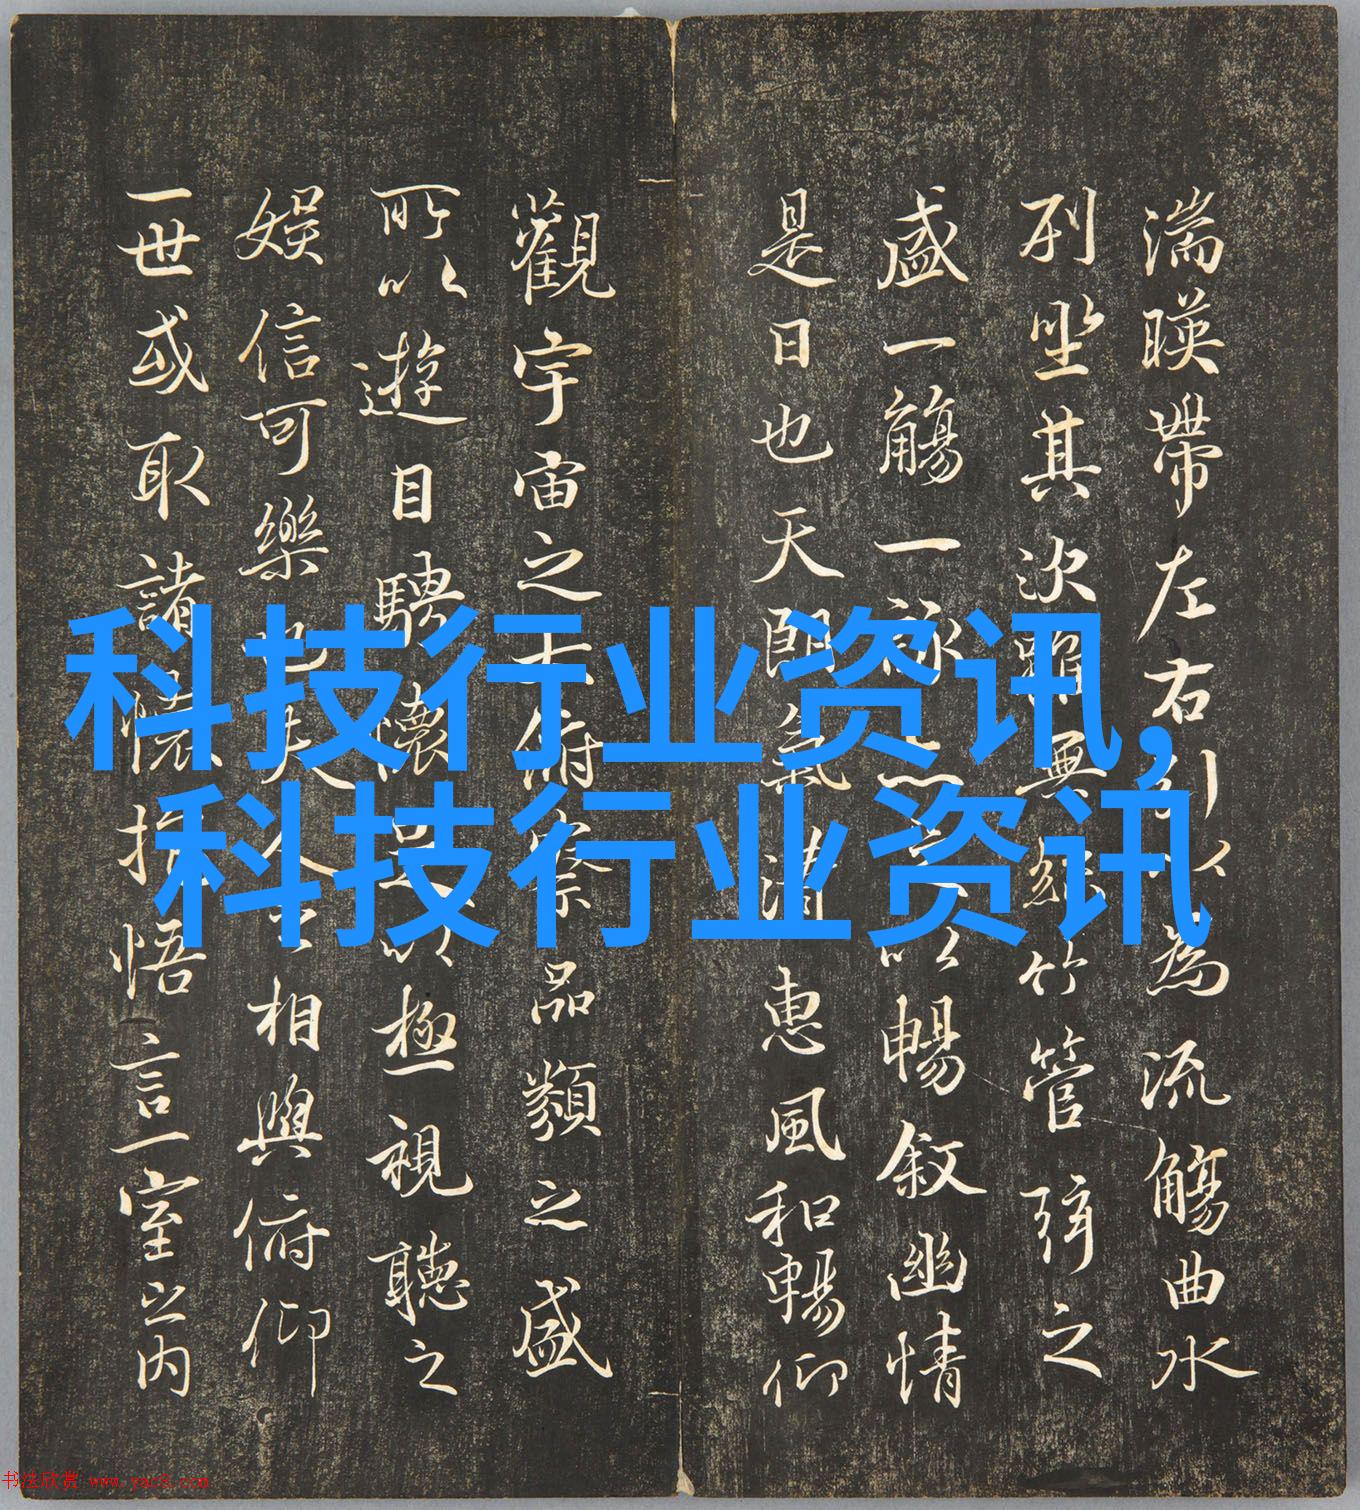 湍暎帶左右引以為流觴曲水
列坐其次雖無絲竹管弦之
盛一觴一詠亦足以暢敘幽情
是日也天朗氣清惠風和暢仰
觀宇宙之大俯察品類之盛
所以遊目騁懷足以極視聽之
娛信可樂也夫人之相與俯仰
一世或取諸懷抱悟言一室之内
科技行业资讯,
科技行业资讯
书法欣赏 www.yac8.com